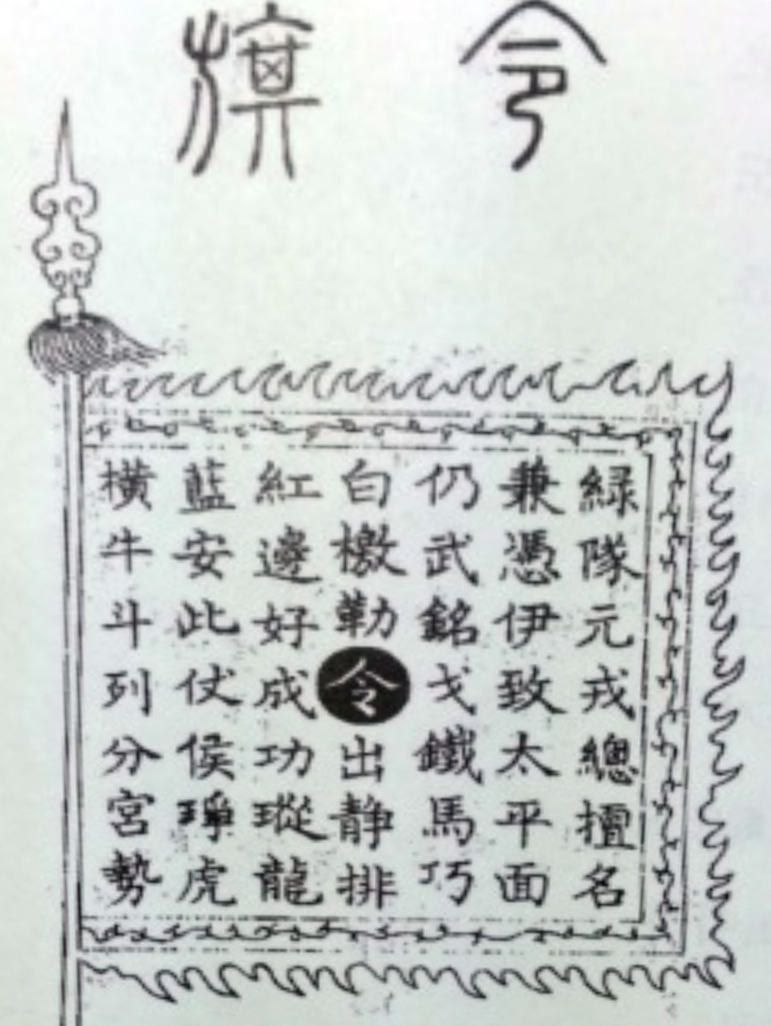 令旗
綠隊元戎總擅名
兼憑伊致太平面
仍武銘戈鐵馬巧
白檄勒令出静排
紅邊好成功瑽龍
藍安此仗侯琤虎
橫牛斗列分宮勢